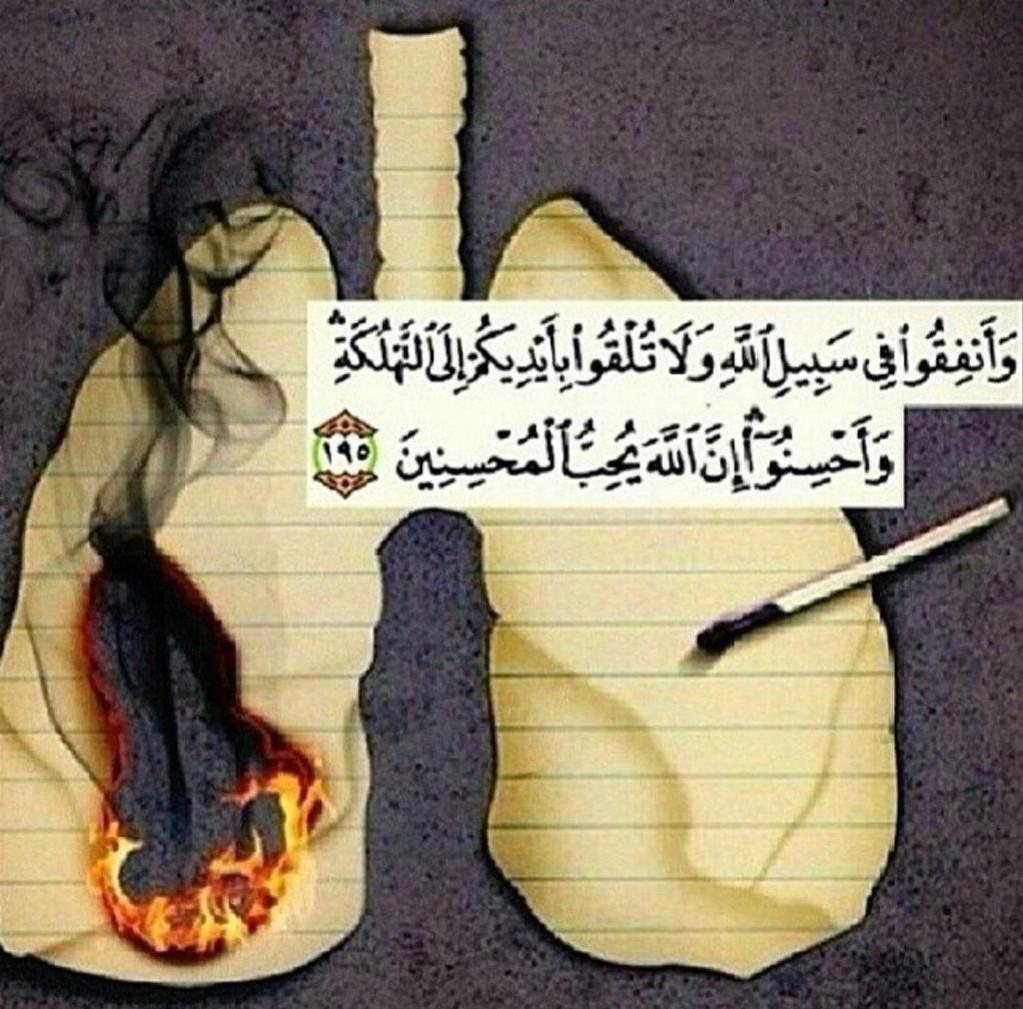 وَأَنفِقُوا۟ فِى سَبِيلِ ٱللَّهِ وَلَا تُلْقُوا۟ بِأَيْدِيكُمْ إِلَى ٱلتَّهْلُكَةِ ۛ
وَأَحْسِنُوٓا۟ ۛ إِنَّ ٱللَّهَ يُحِبُّ ٱلْمُحْسِنِينَ ١٩٥